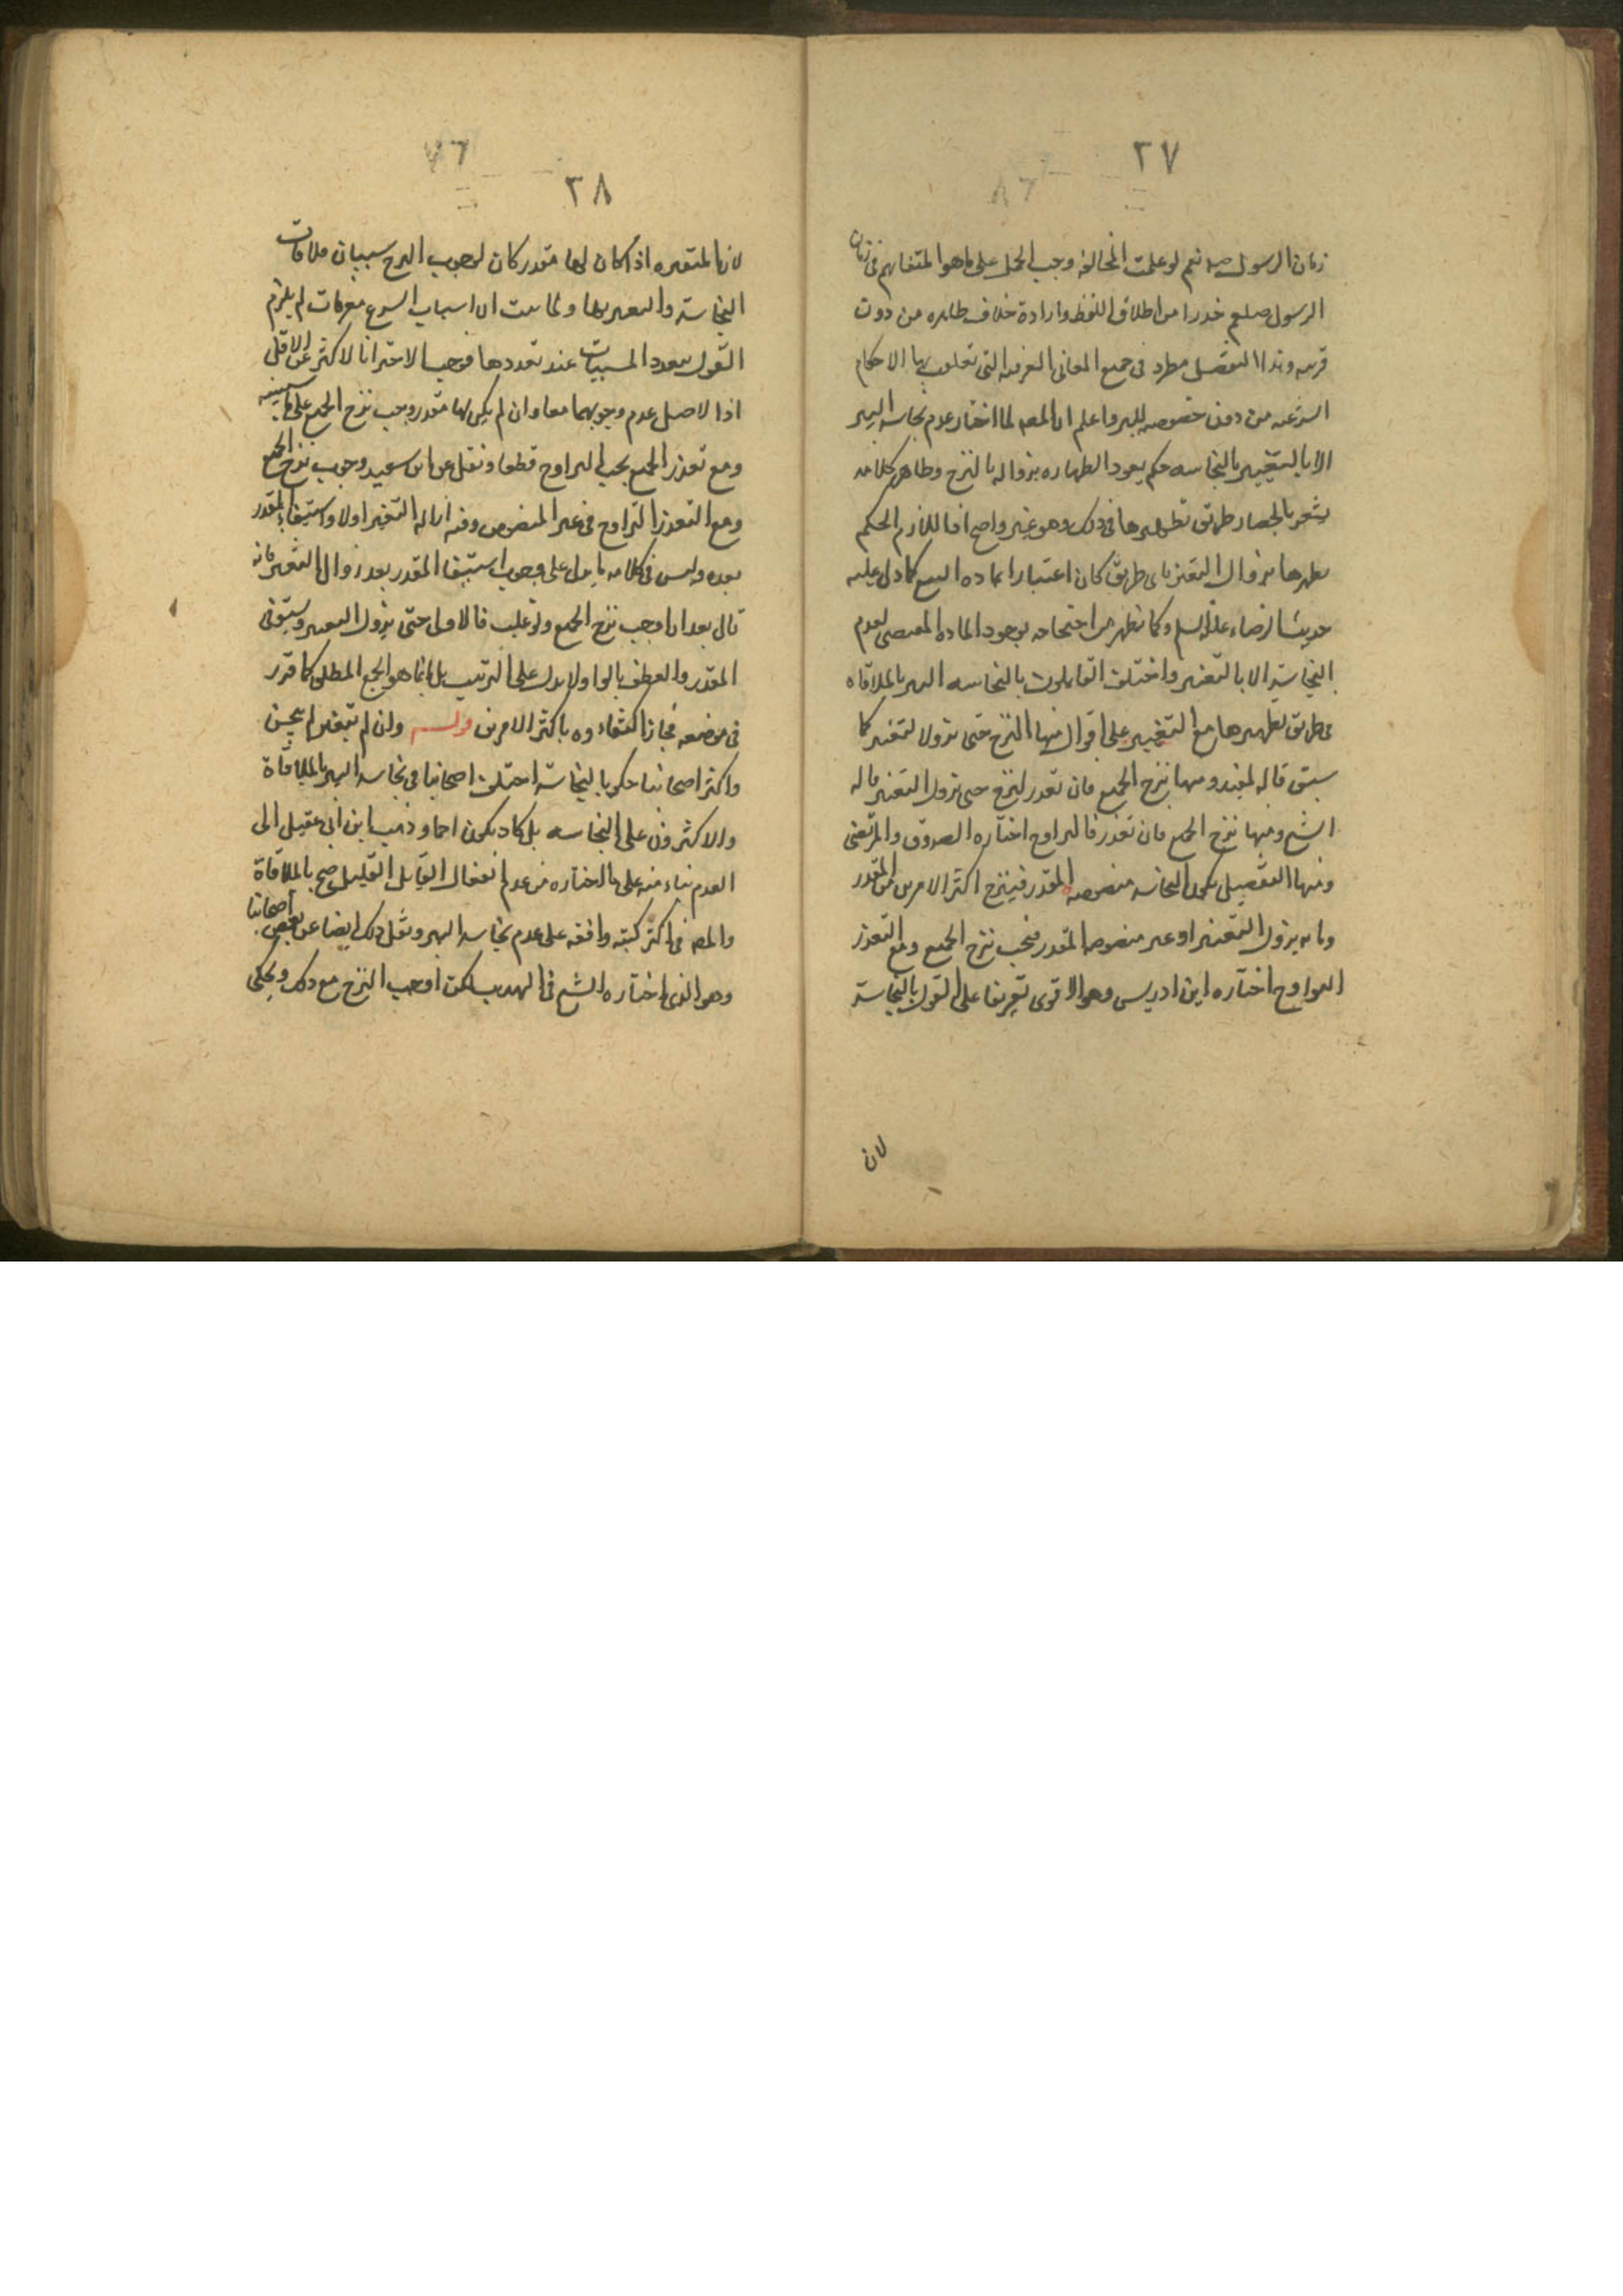 ٢٧
زمان الرسول صلعم نعم لو علمت المخالفة وجب الحمل على ما هو المتفاهم في زمان
الرسول صلعم حذرا من اطلاق اللفظ وارادة خلاف ظاهره من دون
قرينه وهذا التفصيل مطرد في جميع المعاني العرفيه التي تعلقت بها الاحكام
الشرعيه من دون خصوصيه للبير واعلم ان المصه لما اختار عدم نجاسه البير
الا بالتغيير بالنجاسه حكم بعود الطهاره بزواله بالنزح وظاهر كلامه
يشعر بانحصار طريق تطهيرها في ذلك وهو غير واضح اذ اللازم الحكم
بطهرها بزوال التغير باى طريق كان اعتبارا بماده النبع كما دل عليه
حديث الرضاء عليه السلم وكما يظهر من احتجاجه بوجود الماده المقتضى لعدم
النجاسة الا بالتغير واختلف القايلون بالنجاسه البير بالملاقاه
في طريق تطهيرها مع التغيير على اقوال منها النزح حتى يزول التغير كما
سبق قاله المفيد ومنها نزح الجميع فان تعذر نزح حتى يزول التغير قاله
الشيخ ومنها نزح الجميع فان تعذر فالتراوح اختاره الصدوق والمرتضى
ومنها التفصيل بكون النجاسه منصوصه المقدر فينزح اكثر الامرين من المقدر
وما به يزول التغير او غير منصوصه المقدر فيجب نزح الجميع ومع التعذر
التراوح اختاره ابن ادريس وهو الاقوى تفريعا على القول بالنجاسة
لان
٢٨
لان المتغيره اذا كان لها مقدر كان لوجوب النزح سببان ملاقات
النجاسة والتغير بها ولما ثبت ان اسباب الشرع معرفات لم يلزم
القول بتعدد المسببات عند تعددها فوجب الاجتزا بالاكثر عن الاقل
اذ الاصل عدم وجوبهما معا وان لم يكن لها مقدر وجب نزح الجميع على ما سنبينه
ومع تعذر الجميع يجب التراوح قطعا ونقل عن ابن سعيد وجوب نزح الجميع
ومع التعذر التراوح في غير المنصوص وفيه ازاله التغير اولا واستيفاء المقدر
بعده وليس في كلامه ما يدل على وجوب استيفا المقدر بعد زوال التغير فانه
قال بعد ان اوجب نزح الجميع ولو غلب فالاولى حتى يزول التغير ويستوفى
المقدر والعطف بالواو لا يدل على الترتيب بل انما هو الجمع المطلق كما قرر
في موضعه فجاز اكتفاءوه باكثر الامرين قوله وان لم يتغير لم ينجس
واكثر اصحابنا حكموا بالنجاسة اختلف اصحابنا في نجاسه البير بالملاقاة
والاكثرون على النجاسه بل كاد يكون اجماعا وذهب ابن ابى عقيل الى
العدم بناء منه على ما اختاره من عدم انفعال القليل بالملاقاة
والمصه في اكثر كتبه وافقه على عدم نجاسه البير ونقل ذلك ايضا عن بعض اصحابنا
وهو الذى اختاره الشيخ في التهذيب لكن اوجب النزح مع ذلك ويحكى